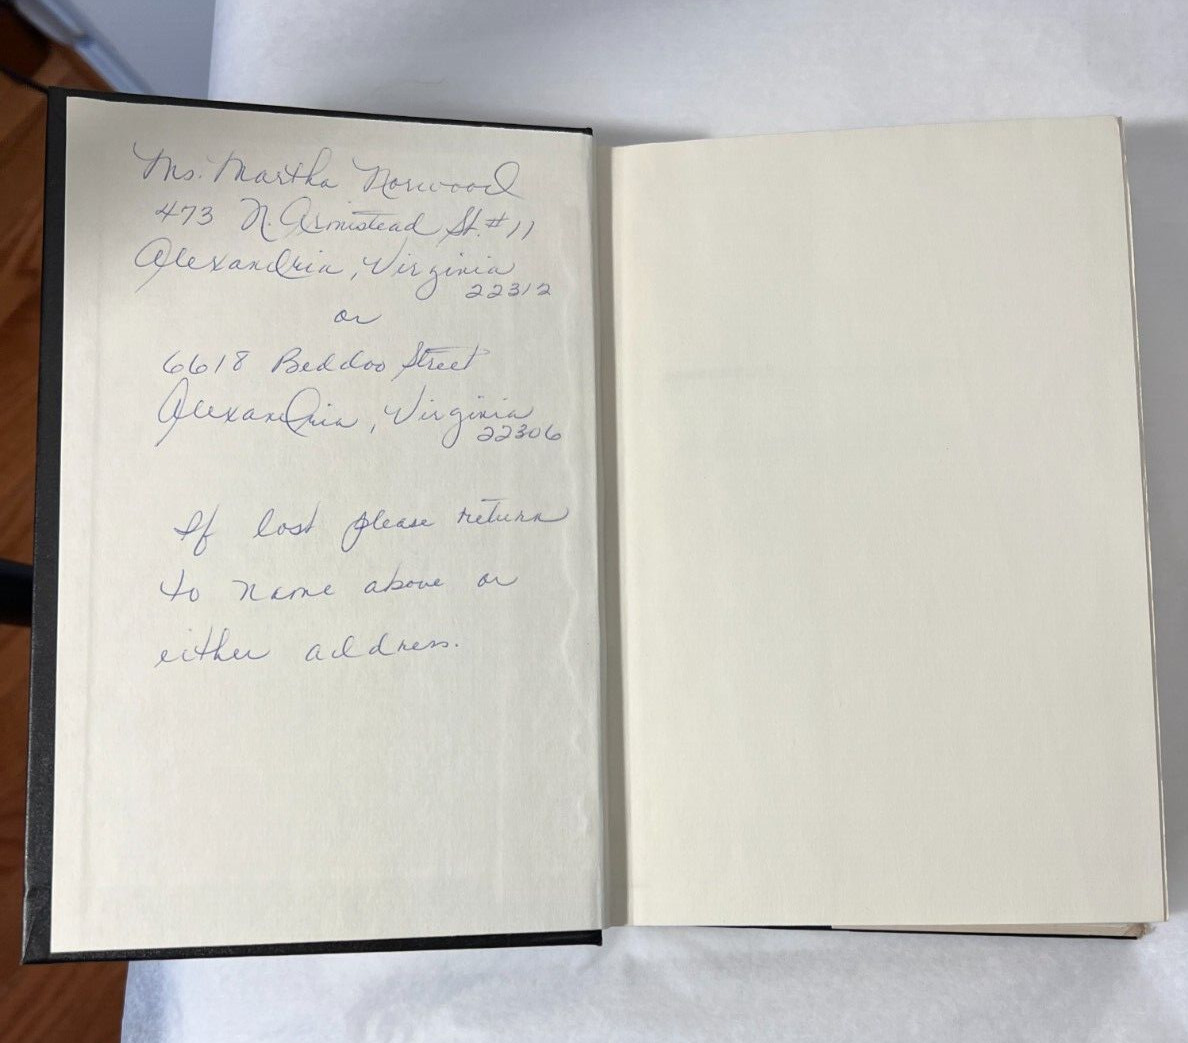 Ms. Martha Norwood
473 N. Armistead St. #11
Alexandria, Virginia
22312
or
6618 Beddoo Street
Alexandria, Virginia
22306
If lost please return
to name above or
either address.